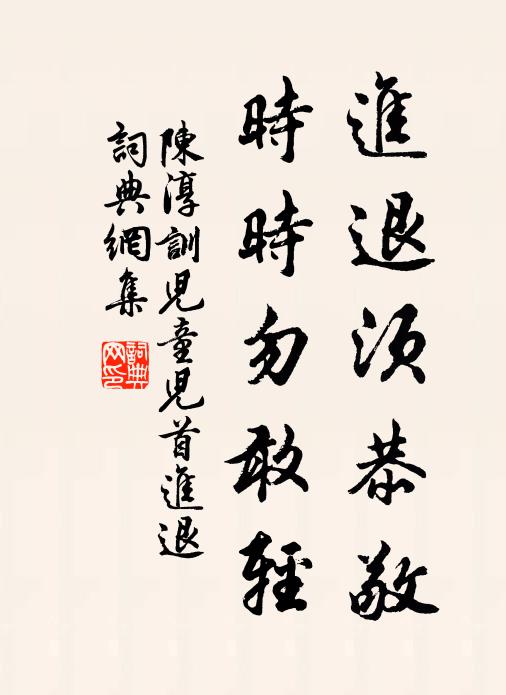 進退須恭敬
時時勿敢輕
陳淳訓児童児首進退
詞典網集
詞典網印